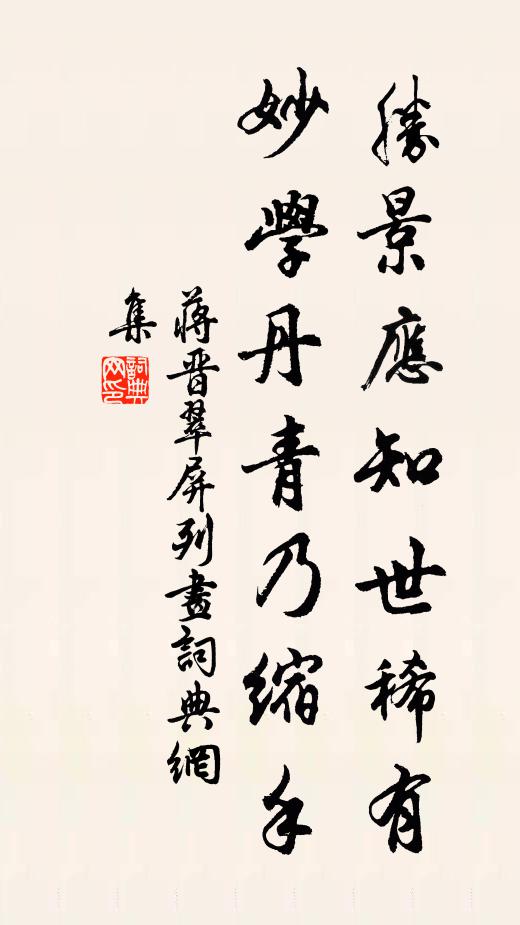 勝景應知世稀有
妙學丹青乃縮手
蔣晋翠屏列畫詞典網
集
詞典网印